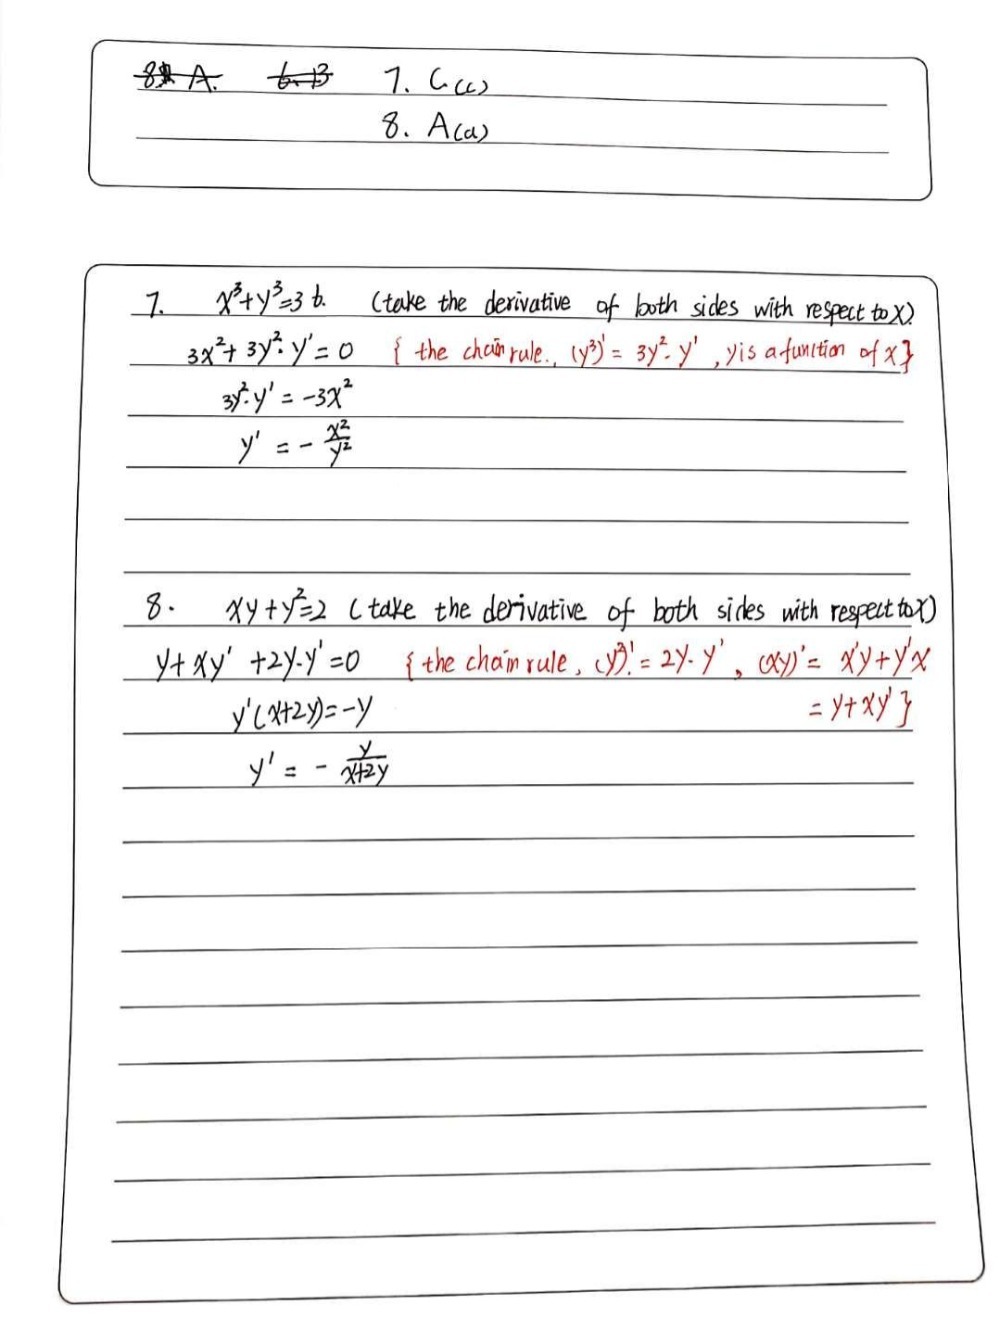 8. A. 6. B 7. C (c)
8. A (a)
7. x³+y³=36. (take the derivative of both sides with respect to x)
3x²+3y²·y'=0 { the chain rule., (y³)'=3y²·y', y is a function of x}
3y²·y'=-3x²
y'=-x²/y²
8. xy+y²=2 (take the derivative of both sides with respect to x)
y+xy'+2y·y'=0 { the chain rule, (y²)'=2y·y', (xy)'=x'y+y'x
y'(x+2y)=-y =y+xy'}
y'=-y/(x+2y)